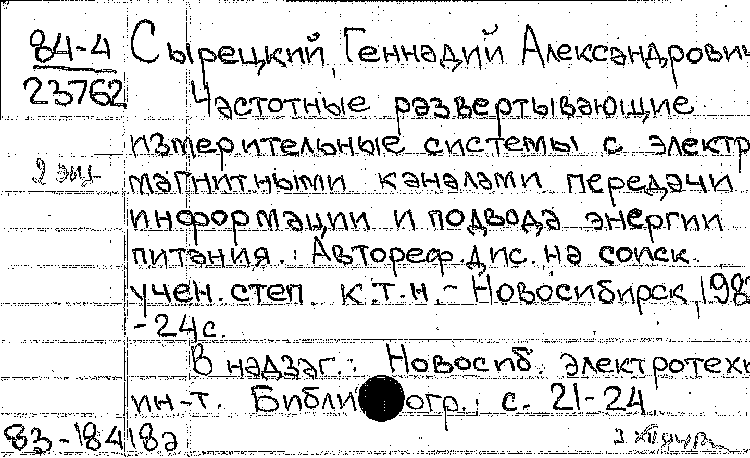 84-4 Сырецкий, Геннадий Александрович
23762 Частотные развертывающие
измерительные системы с электр
2 экз магнитными каналами передачи
информации и подвода энергии
питания.: Автореф. дис. на соиск.
учен. степ. к.т.н. - Новосибирск, 198
-24 с.
В надзаг.: Новосиб. электротехн
ин-т. Библиогр.: с. 21-24
83-18418а